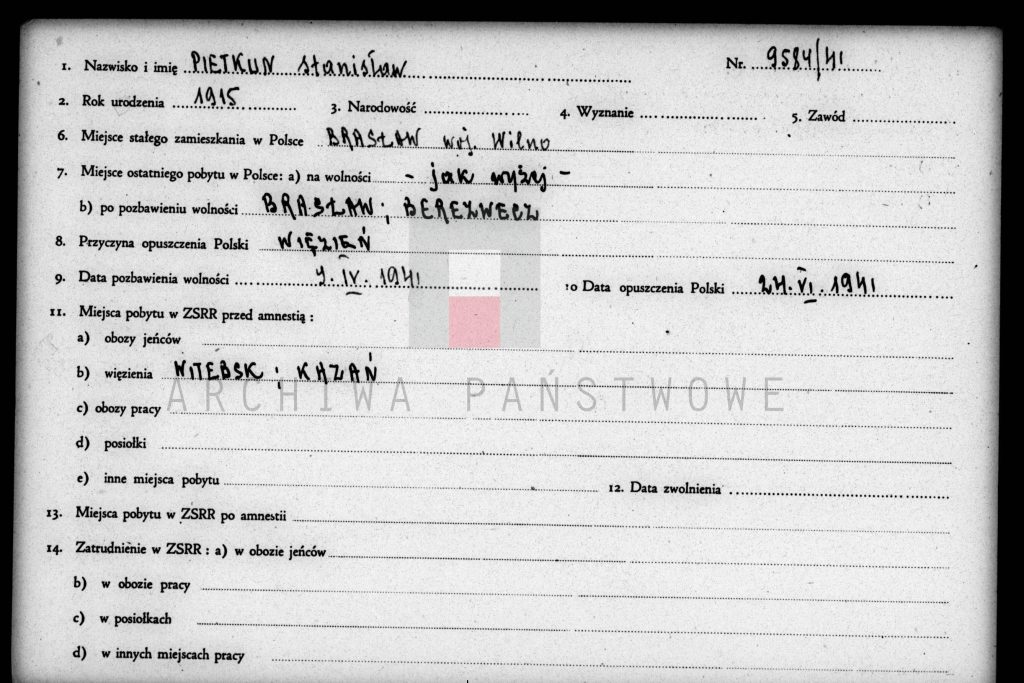 1. Nazwisko i imię PIETKUN Stanisław Nr. 9584/41
2. Rok urodzenia 1915 3. Narodowość 4. Wyznanie 5. Zawód
6. Miejsce stałego zamieszkania w Polsce BRASŁAW woj. Wilno
7. Miejsce ostatniego pobytu w Polsce: a) na wolności - jak wyżej -
b) po pozbawieniu wolności BRASŁAW; BEREZWECZ
8. Przyczyna opuszczenia Polski WIĘZIEŃ
9. Data pozbawienia wolności 9. IV. 1941 10 Data opuszczenia Polski 24. VI. 1941
11. Miejsca pobytu w ZSRR przed amnestią :
a) obozy jeńców
b) więzienia WITEBSK ; KAZAŃ
ARCHIWA PAŃSTWOWE
c) obozy pracy
d) posiołki
e) inne miejsca pobytu 12. Data zwolnienia
13. Miejsca pobytu w ZSRR po amnestii
14. Zatrudnienie w ZSRR : a) w obozie jeńców
b) w obozie pracy
c) w posiołkach
d) w innych miejscach pracy